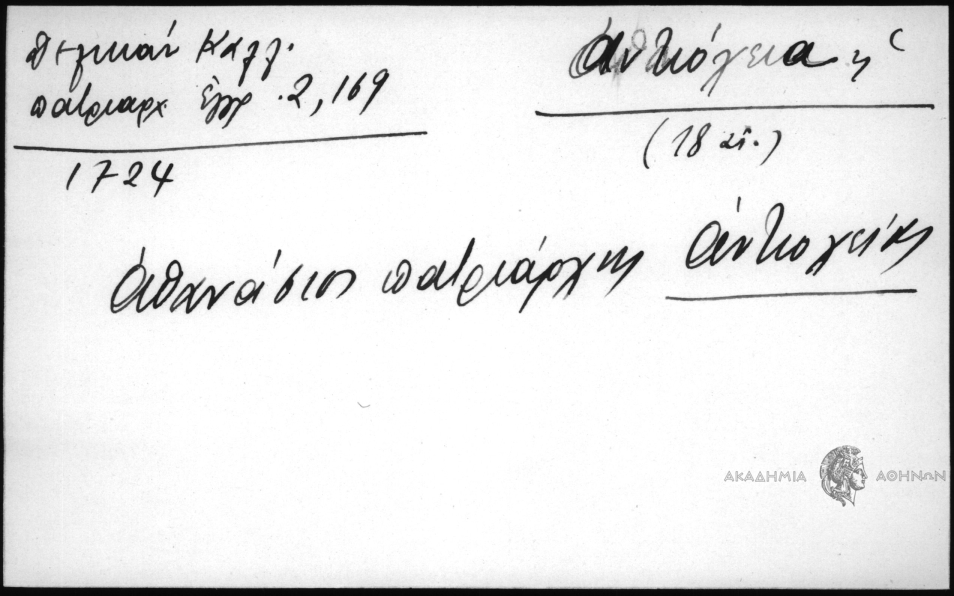 Δελικάν Καλλ.
πατριαρχ. Ἔγγρ. 2, 169
1724
Ἀντιόχεια ἡ
(18 αἰ.)
Ἀθανάσιος πατριάρχης Ἀντιοχείας
ΑΚΑΔΗΜΙΑ ΑΘΗΝΩΝ